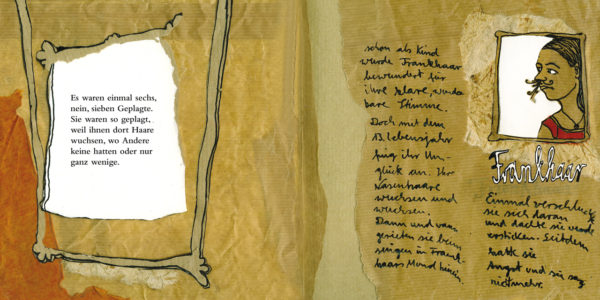 Es waren einmal sechs,
nein, sieben Geplagte.
Sie waren so geplagt,
weil ihnen dort Haare
wuchsen, wo Andere
keine hatten oder nur
ganz wenige.
schon als Kind
wurde Frankhaar
bewundert für
ihre klare, wunder
bare Stimme.
Doch mit dem
13. Lebensjahr
fing ihr Un-
glück an. Ihr
Nasenhaare
wuchsen und
wuchsen.
Dann und wann
gerieten sie beim
singen in Frank-
haars Mund hinein.
Frankhaar
Einmal verschluckte
sie sich daran
und dachte sie würde
ersticken. Seitdem
hatte sie
Angst und sie sang
nicht mehr.